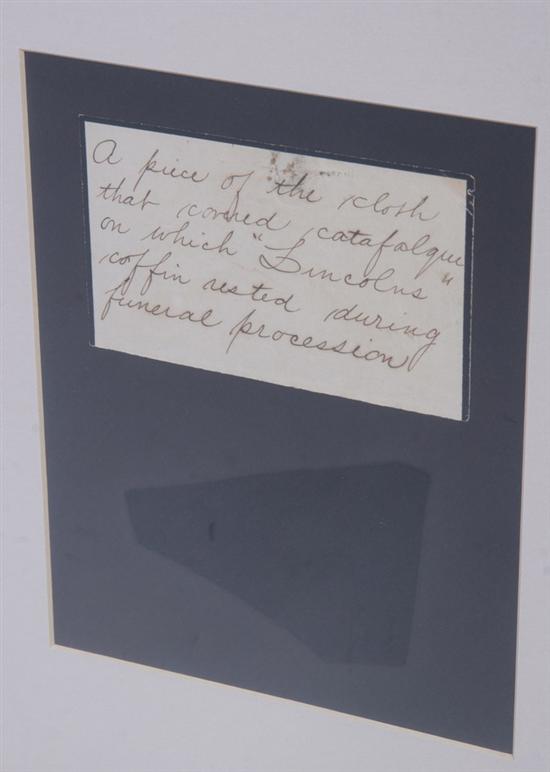 A piece of the cloth
that covered catafalque
on which "Lincolns"
coffin rested during
funeral procession